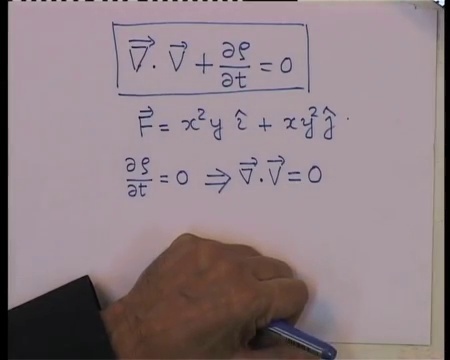 ∇⃗ · V⃗ + ∂ρ/∂t = 0
F⃗ = x²y î + xy² ĵ .
∂ρ/∂t = 0 ⇒ ∇⃗ · V⃗ = 0